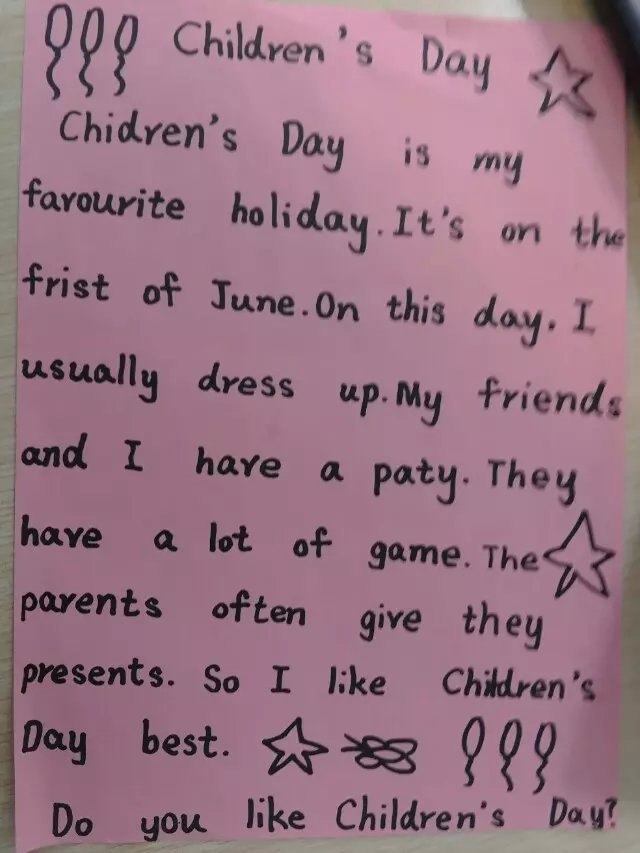 Children's Day
Chidren's Day is my
favourite holiday. It's on the
frist of June. On this day. I
usually dress up. My friends
and I have a paty. They
have a lot of game. The
parents often give they
presents. So I like Children's
Day best.
Do you like Children's Day?